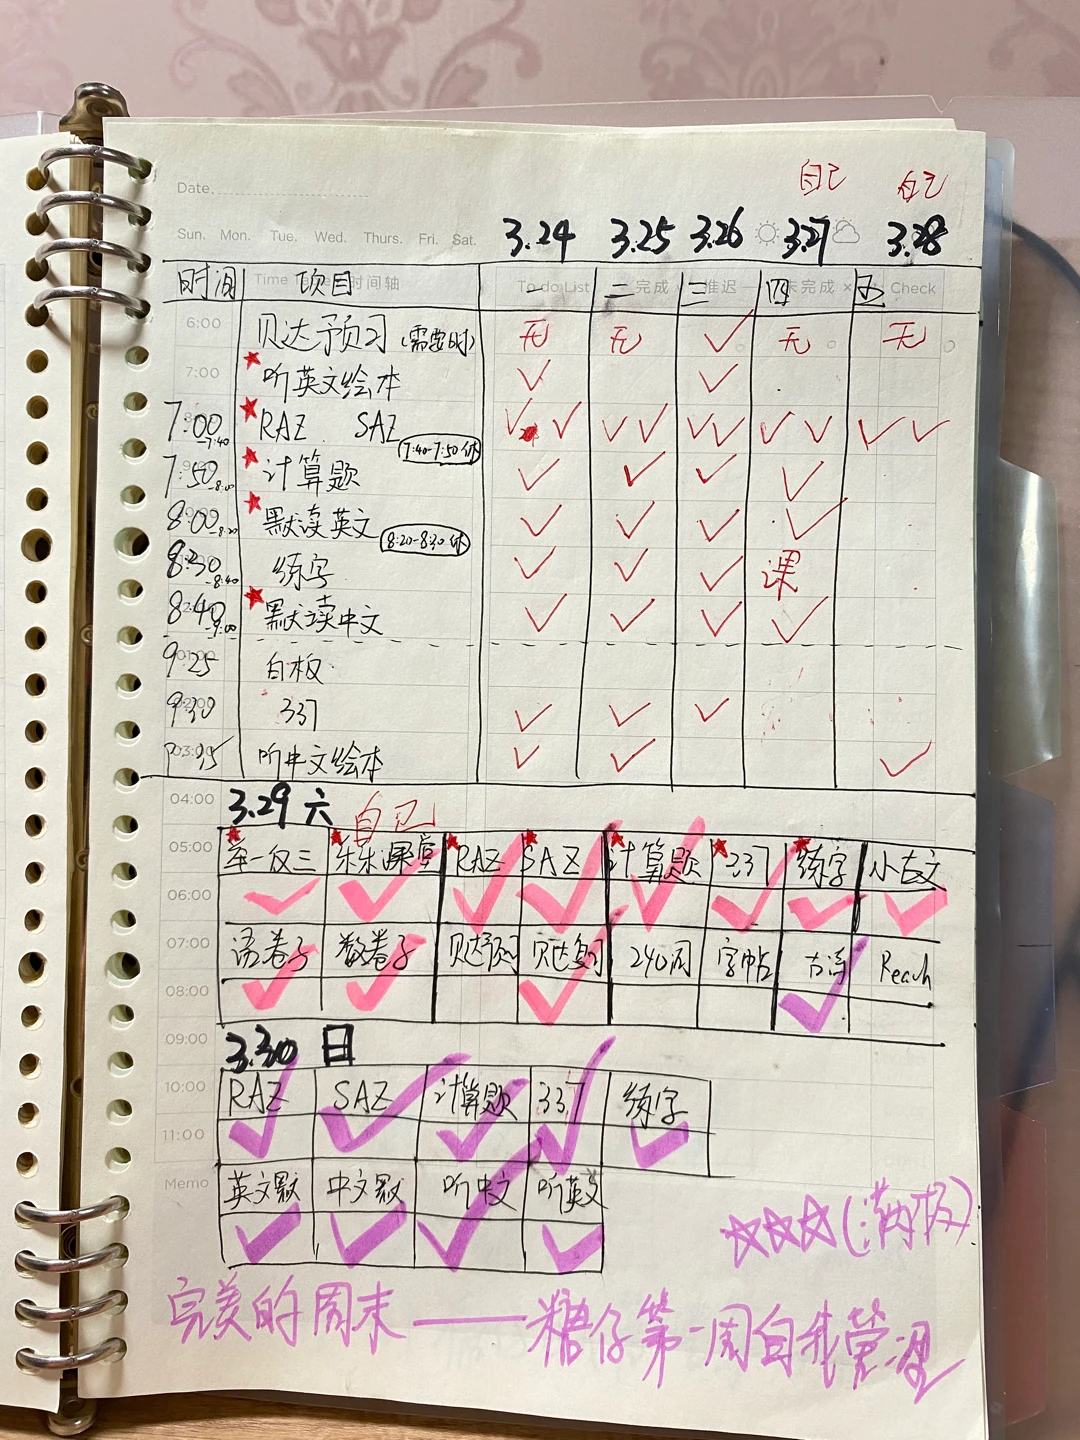 Date.
自己 自己
Sun. Mon. Tue. Wed. Thurs. Fri. Sat.
3.24 3.25 3.26 3.27 3.28
时间 项目 一 二 三 四 五
时间轴 To do List 完成 推迟 未完成 × Check
6:00 贝达预习(需要时) 无 无 ✓ 无 无
7:00 听英文绘本 ✓ ✓
7:00-7:40 ★RAZ SAZ 7:40-7:50休 ✓ ✓ ✓ ✓ ✓ ✓ ✓ ✓ ✓ ✓
7:50-8:00 ★计算题 ✓ ✓ ✓ ✓
8:00-8:20 ★默读英文 8:20-8:30休 ✓ ✓ ✓ ✓
8:30-8:40 练字 ✓ ✓ ✓ 课
8:40-9:00 ★默读中文 ✓ ✓ ✓ ✓
9:25 白板
9:30 337 ✓ ✓ ✓
03:00 听中文绘本 ✓ ✓ ✓
04:00 3.29 六 自己
05:00 ★举一反三 ★乐乐课堂 ★RAZ ★SAZ ★计算题 ★337 ★练字 小古文
06:00 ✓ ✓ ✓ ✓ ✓ ✓ ✓ ✓
07:00 语卷子 数卷子 贝达预习 贝达复习 240周 字帖 古诗 Reach
08:00 ✓ ✓ ✓ ✓
09:00 3.30 日
10:00 RAZ SAZ 计算题 337 练字
11:00 ✓ ✓ ✓ ✓ ✓
Memo 英文默 中文默 听中文 听英文
✓ ✓ ✓ ✓
☆☆☆(:满
完美的周末——糖仔第一周自我管理